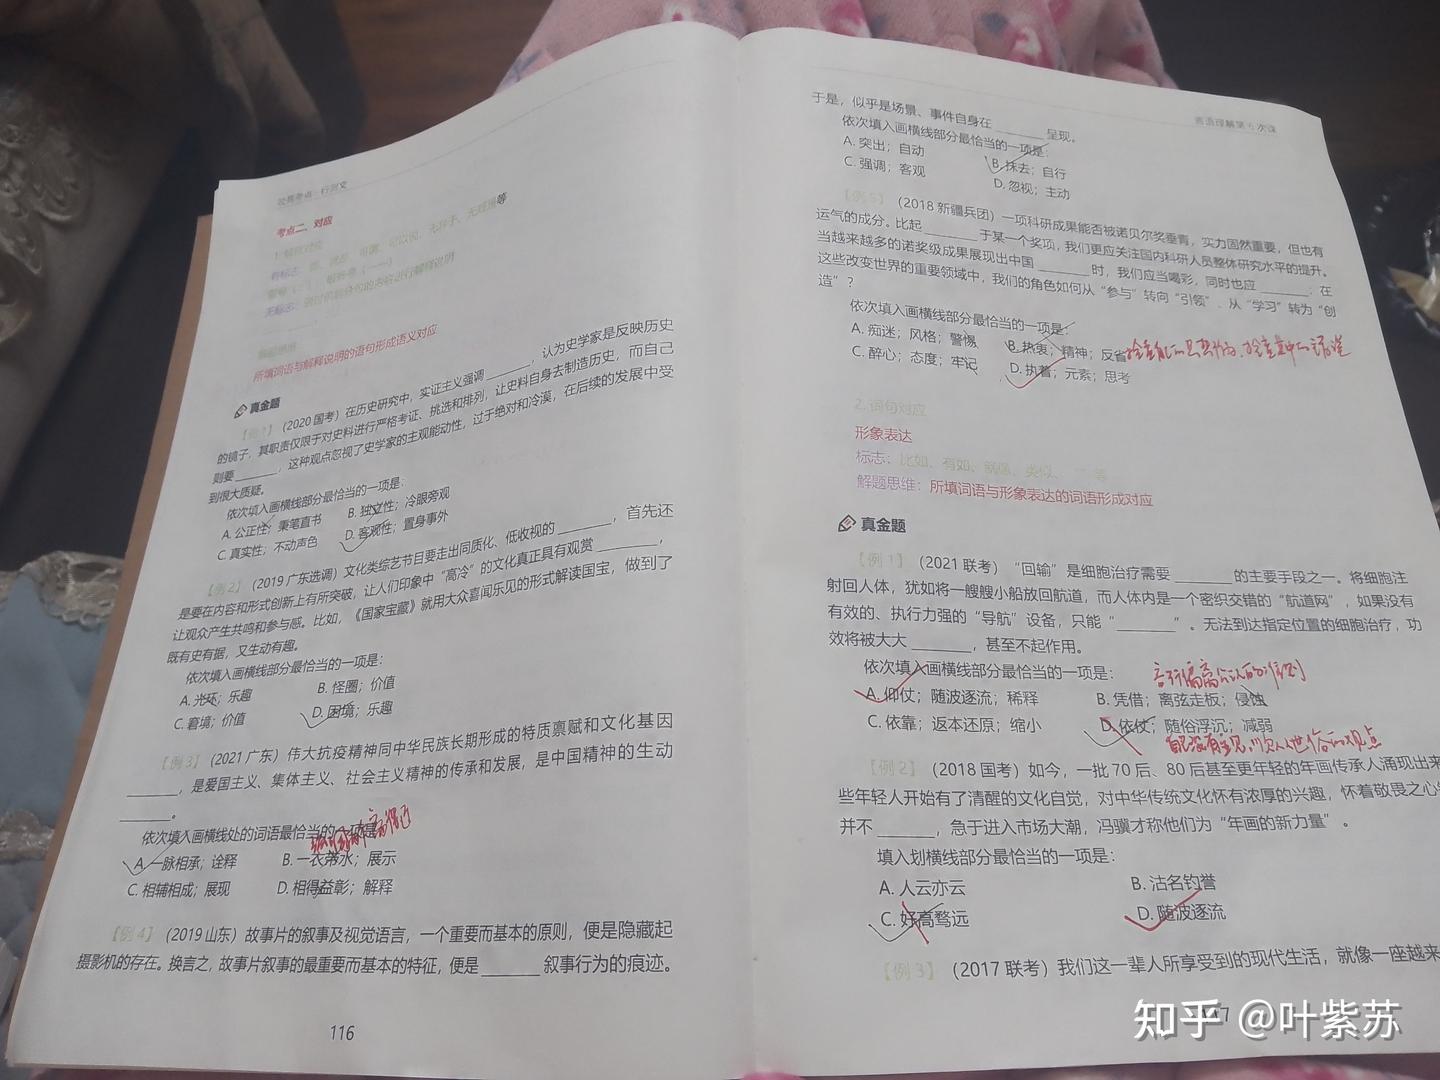 公共考点·行测文
考点二、对应
1.解释对应
无标志：通过前后分句的内容进行解释说明
解题思维：
所填词语与解释说明的语句形成语义对应
真金题
【例1】（2020 国考）在历史研究中，实证主义强调______认为史学家是反映历史
的镜子，其职责仅限于对史料进行严格考证、挑选和排列，让史料自身去制造历史，而自己
则要______，这种观点忽视了史学家的主观能动性，过于绝对和冷漠，在后续的发展中受
到很大质疑。
依次填入画横线部分最恰当的一项是：
A. 公正性；秉笔直书 B. 独立性；冷眼旁观
C. 真实性；不动声色 D. 客观性；置身事外
【例2】（2019 广东选调）文化类综艺节目要走出同质化、低收视的______，首先还
是要在内容和形式创新上有所突破，让人们印象中“高冷”的文化真正具有观赏______，
让观众产生共鸣和参与感。比如，《国家宝藏》就用大众喜闻乐见的形式解读国宝，做到了
既有史有据，又生动有趣。
依次填入画横线部分最恰当的一项是：
A. 光环；乐趣 B. 怪圈；价值
C. 窘境；价值 D. 困境；乐趣
【例3】（2021 广东）伟大抗疫精神同中华民族长期形成的特质禀赋和文化基因
______，是爱国主义、集体主义、社会主义精神的传承和发展，是中国精神的生动
______。
依次填入画横线处的词语最恰当的一项是
A. 一脉相承；诠释 B. 一衣带水；展示
C. 相辅相成；展现 D. 相得益彰；解释
【例4】（2019 山东）故事片的叙事及视觉语言，一个重要而基本的原则，便是隐藏起
摄影机的存在。换言之，故事片叙事的最重要而基本的特征，便是______叙事行为的痕迹。
116
言语理解第5次课
于是，似乎是场景、事件自身在______呈现。
依次填入画横线部分最恰当的一项是：
A. 突出；自动 B. 抹去；自行
C. 强调；客观 D. 忽视；主动
【例5】（2018 新疆兵团）一项科研成果能否被诺贝尔奖垂青，实力固然重要，但也有
运气的成分。比起______于某一个奖项，我们更应关注国内科研人员整体研究水平的提升。
当越来越多的诺奖级成果展现出中国______时，我们应当喝彩，同时也应______：在
这些改变世界的重要领域中，我们的角色如何从“参与”转向“引领”、从“学习”转为“创
造”？
依次填入画横线部分最恰当的一项是：
A. 痴迷；风格；警惕 B. 热衷；精神；反省
C. 醉心；态度；牢记 D. 执着；元素；思考
2. 词句对应
形象表达
标志：比如、有如、就像、类似、“”等
解题思维：所填词语与形象表达的词语形成对应
真金题
【例1】（2021 联考）“回输”是细胞治疗需要______的主要手段之一。将细胞注
射回人体，犹如将一艘艘小船放回航道，而人体内是一个密织交错的“航道网”，如果没有
有效的、执行力强的“导航”设备，只能“______”。无法到达指定位置的细胞治疗，功
效将被大大______，甚至不起作用。
依次填入画横线部分最恰当的一项是：
A. 仰仗；随波逐流；稀释 B. 凭借；离弦走板；侵蚀
C. 依靠；返本还原；缩小 D. 依仗；随俗浮沉；减弱
【例2】（2018 国考）如今，一批 70 后、80 后甚至更年轻的年画传承人涌现出来
些年轻人开始有了清醒的文化自觉，对中华传统文化怀有浓厚的兴趣，怀着敬畏之心
并不______，急于进入市场大潮，冯骥才称他们为“年画的新力量”。
填入划横线部分最恰当的一项是：
A. 人云亦云 B. 沽名钓誉
C. 好高骛远 D. 随波逐流
【例3】（2017 联考）我们这一辈人所享受到的现代生活，就像一座越来
知乎 @叶紫苏